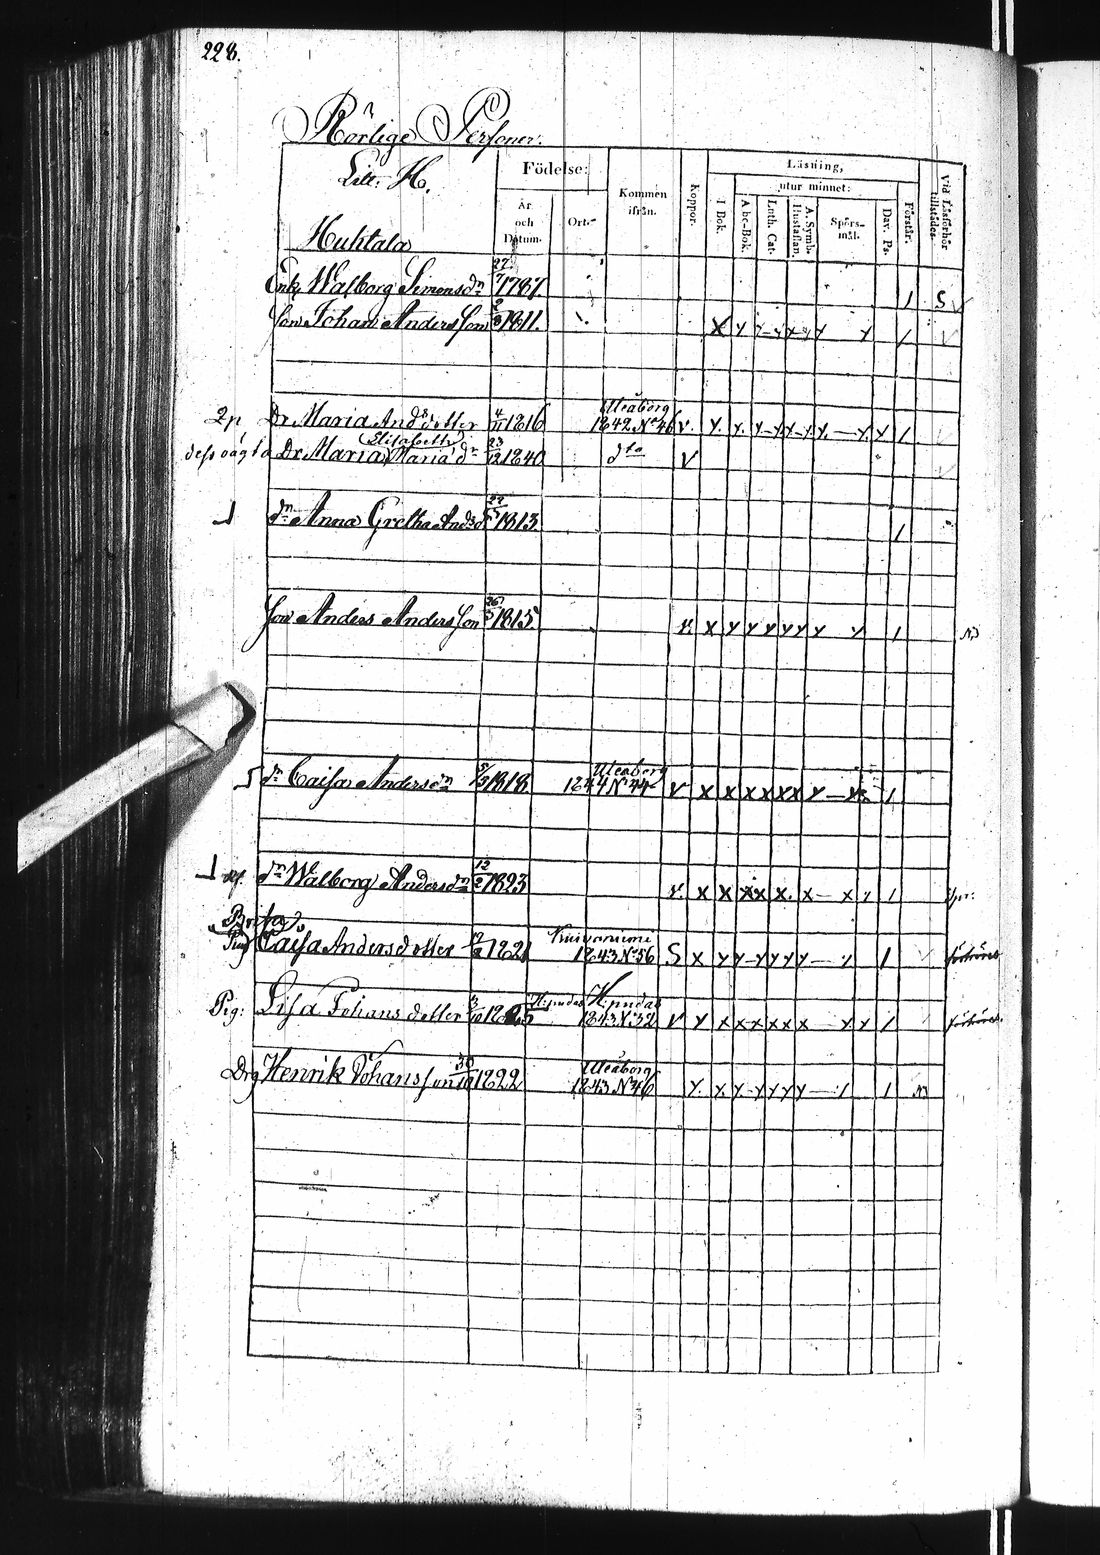 228.
Rörlige Personer.
Litt. H.
Huhtala
Födelse:
År och Datum.
Ort.
Kommen ifrån.
Koppor.
Läsning,
utur minnet:
I Bok.
Abc-Bok.
Luth. Cat.
A. Symb. Hustaflan.
Spörs-mål.
Dav. Ps.
Förstår.
Vid Läsförhör tillstädes.
Enk. Walborg Simonsdr 27/7 1787. 1 S
Son Johan Andersson 2/3 1811. X y y y x y y y 1
2p Dr Maria Andsdotter 4/11 1816 Uleåborg 1842 No 46 v. y. y. y y x y y. y y 1
dess oägta Dr Maria Elisabeth Maria dr 23/12 1840 dto v
dr Anna Gretha Andsd 1813 1
Son Anders Andersson 26/5 1815 v. x y y y y y y y 1
dr Caisa Andersdr 5/3 1818 Uleåborg 1844 No 44 v x x x x x x y 1
dr Walborg Andersdr 12/2 1823 v. x x x x x. x x y 1
Brita
Pig Caisa Andersdotter 1821 Kuivaniemi 1843 No 56 S x y y y y y y y 1
Pig: Lisa Johansdotter 1825 H:pudas H:pudas 1843 No 32 v y x x x x x x y x 1
Drg Henrik Johansson 30/10 1822 Uleåborg 1843 No 46 y. x. y y y y y 1 1